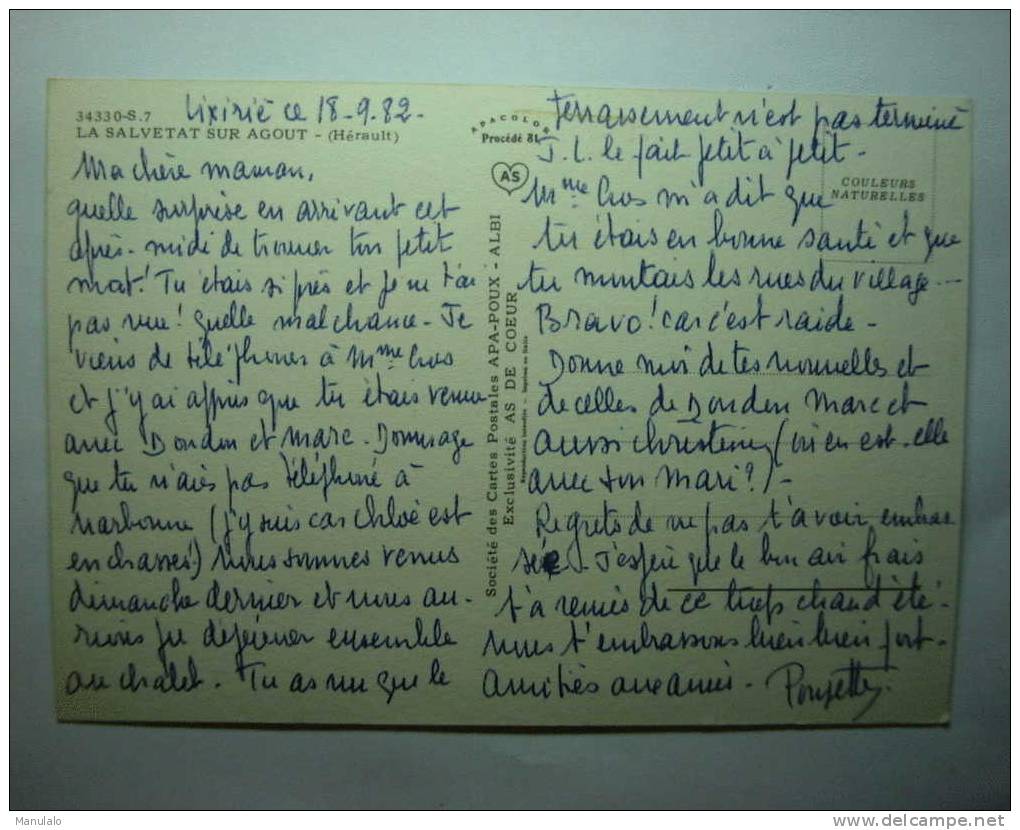 34330-S.7
LA SALVETAT SUR AGOUT - (Hérault)
ce 18-9-82-
Ma chère maman,
quelle surprise en arrivant cet
après-midi de trouver ton petit
mot! Tu étais si près et je ne t'ai
pas vue! quelle malchance - Je
viens de téléphoner à Mme Cros
et j'y ai appris que tu étais venue
avec Dondon et Marc. Dommage
que tu n'aies pas téléphoné à
Narbonne (j'y suis car Chloé est
en chasses!) Nous sommes venus
dimanche dernier et nous au-
rions pu déjeuner ensemble
au chalet. Tu as vu que le
APACOLOR
Procédé 81
AS
Société des Cartes Postales APA-POUX - ALBI
Exclusivité AS DE COEUR
Reproduction interdite - Imprimé en Italie
COULEURS
NATURELLES
terrassement n'est pas terminé
J.L. le fait petit à petit -
Mme Cros m'a dit que
tu étais en bonne santé et que
tu montais les rues du village -
Bravo! car c'est raide -
Donne moi de tes nouvelles et
de celles de Dondon Marc et
aussi Christine (où en est-elle
avec son mari?) -
Regrets de ne pas t'avoir embras
sée - J'espère que le bon air frais
t'a remis de ce trop chaud été -
nous t'embrassons bien bien fort -
Amitiés aux amis - Poupette
Manulalo
www.delcampe.net